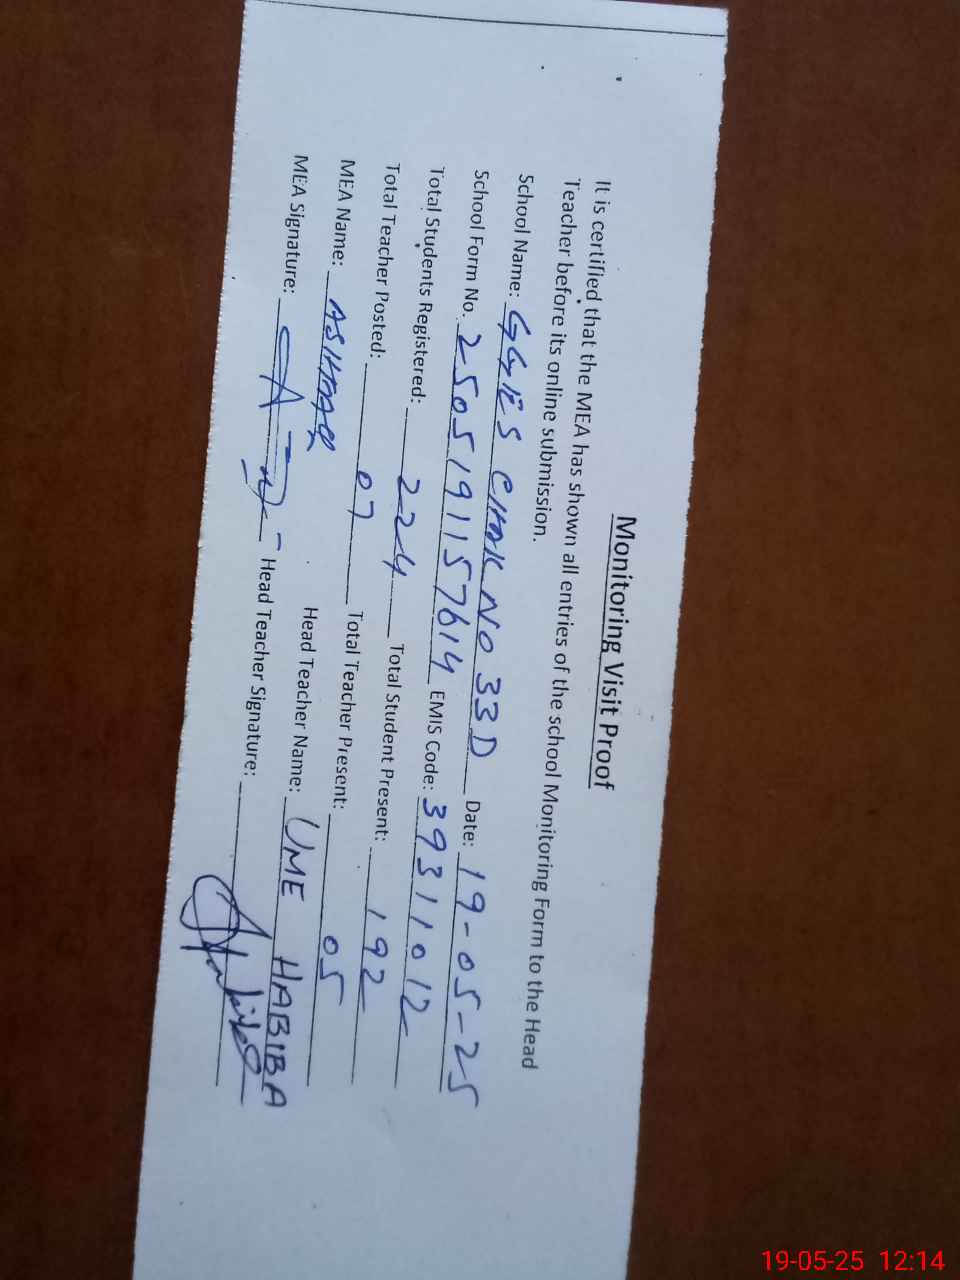 Monitoring Visit Proof
It is certified that the MEA has shown all entries of the school Monitoring Form to the Head
Teacher before its online submission.
School Name: GGES CHAK NO 33D Date: 19-05-25
School Form No. 2505191157614 EMIS Code: 39311012
Total Students Registered: 224 Total Student Present: 192
Total Teacher Posted: 07 Total Teacher Present: 05
MEA Name: Head Teacher Name: UME HABIBA
MEA Signature: Head Teacher Signature:
19-05-25 12:14